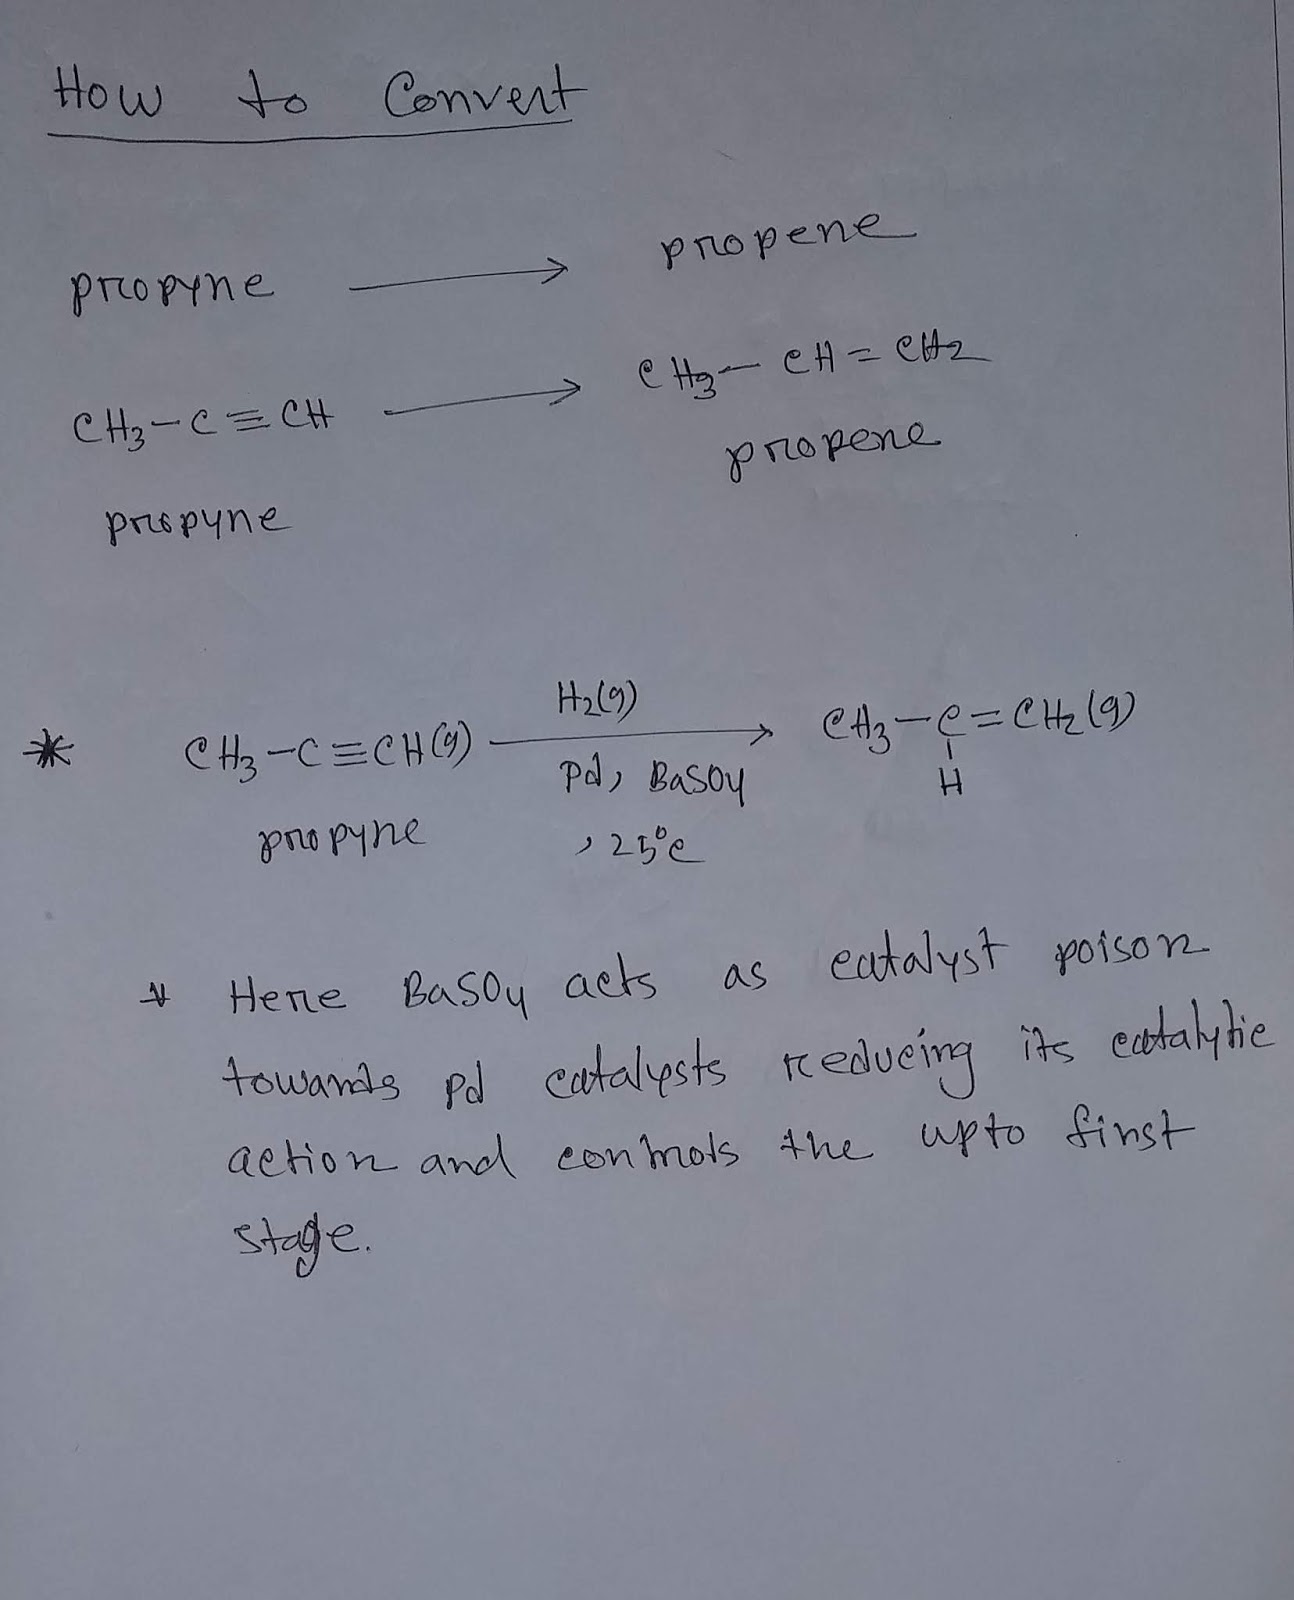 How to Convert
propyne ⟶ propene
CH3-C≡CH ⟶ CH3-CH=CH2
propyne propene
* CH3-C≡CH(g) H2(g) ⟶ CH3-C=CH2(g)
Pd, BaSO4 H
propyne , 25°C
* Here BaSO4 acts as catalyst poison
towards pd catalysts reducing its catalytic
action and controls the upto first
stage.